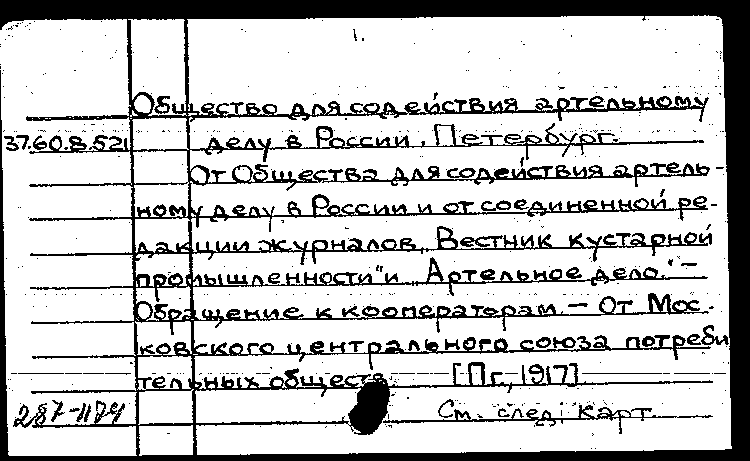 1.
Общество для содействия артельному
37.60.8.521 делу в России, Петербург.
От Общества для содействия артель-
ному делу в России и от соединенной ре-
дакции журналов „Вестник кустарной
промышленности" и „Артельное дело." –
Обращение к кооператорам. – От Мос-
ковского центрального союза потреби
тельных обществ. [Пг., 1917]
287-1174 См. след. карт.